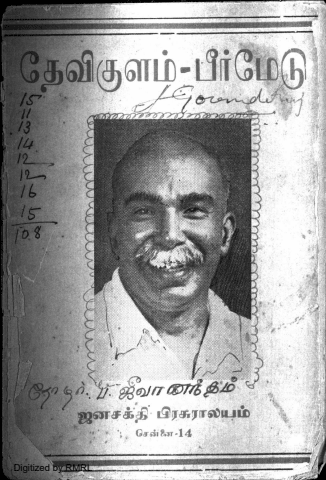 தேவிகுளம்-பீர்மேடு
15
11
13
14
12
12
16
15
108
தோழர். ப. ஜீவானந்தம்
ஜனசக்தி பிரசுராலயம்
சென்னை-14
Digitized by RMRL